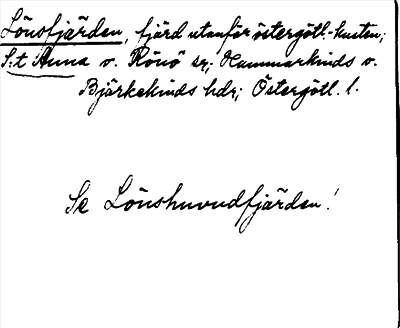 Lönsfjärden, fjärd utanför östergötl.-kusten;
S:t Anna o. Rönö sr; Hammarkinds o.
Björkekinds hdr; Östergötl. l.
Se Lönshuvudfjärden!